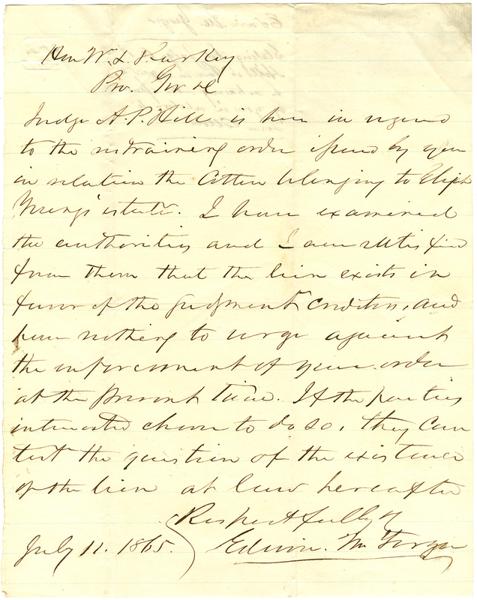 Hon W. L. Sharkey
Pro. Gov &c
Judge A. P. Hill is here in regard
to the restraining order issued by you
in relation the Cotton belonging to Elijah
estate. I have examined
the authorities and I am satisfied
from them that the lien exists in
favor of the judgment creditors, and
have nothing to urge against
the enforcement of your order
at the present time. If the parties
interested choose to do so, they can
test the question of the existence
of the lien at law hereafter
Respectfully
July 11. 1865.
Edwin